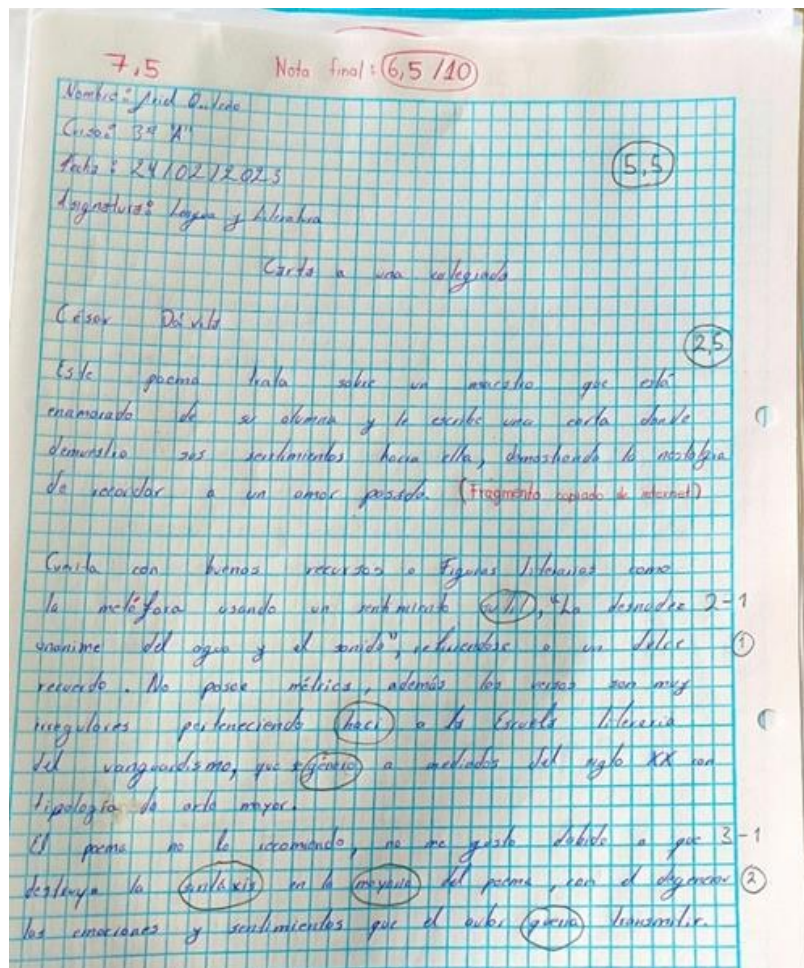 7,5 Nota final: 6,5/10
Nombre: Ariel
Curso: 3º "A"
Fecha: 24/02/2023
5,5
Asignatura: Lengua y Literatura
Carta a una colegiada
César Dávila
2,5
Este poema trata sobre un maestro que está
enamorado de su alumna y le escribe una carta donde
sus sentimientos hacia ella, demostrando la nostalgia
de recordar a un amor pasado. (Fragmento copiado de internet)
Cuenta con buenos recursos o Figuras literarias como
la metáfora usando un sentimiento "La desnudez 2-1
anonime del agua y el sonido", refiriendose a un dulce 1
recuerdo. No posee métrica, además los versos son muy
irregulares perteneciendo haci a la Escuela literaria
del vanguardismo, que a mediados del siglo XX con
tipología de arte mayor.
El poema no lo recomiendo, no me gusto debido a que 3-1
destruye la en la del poema, con el degenerar 2
las emociones y sentimientos que el autor transmitir.